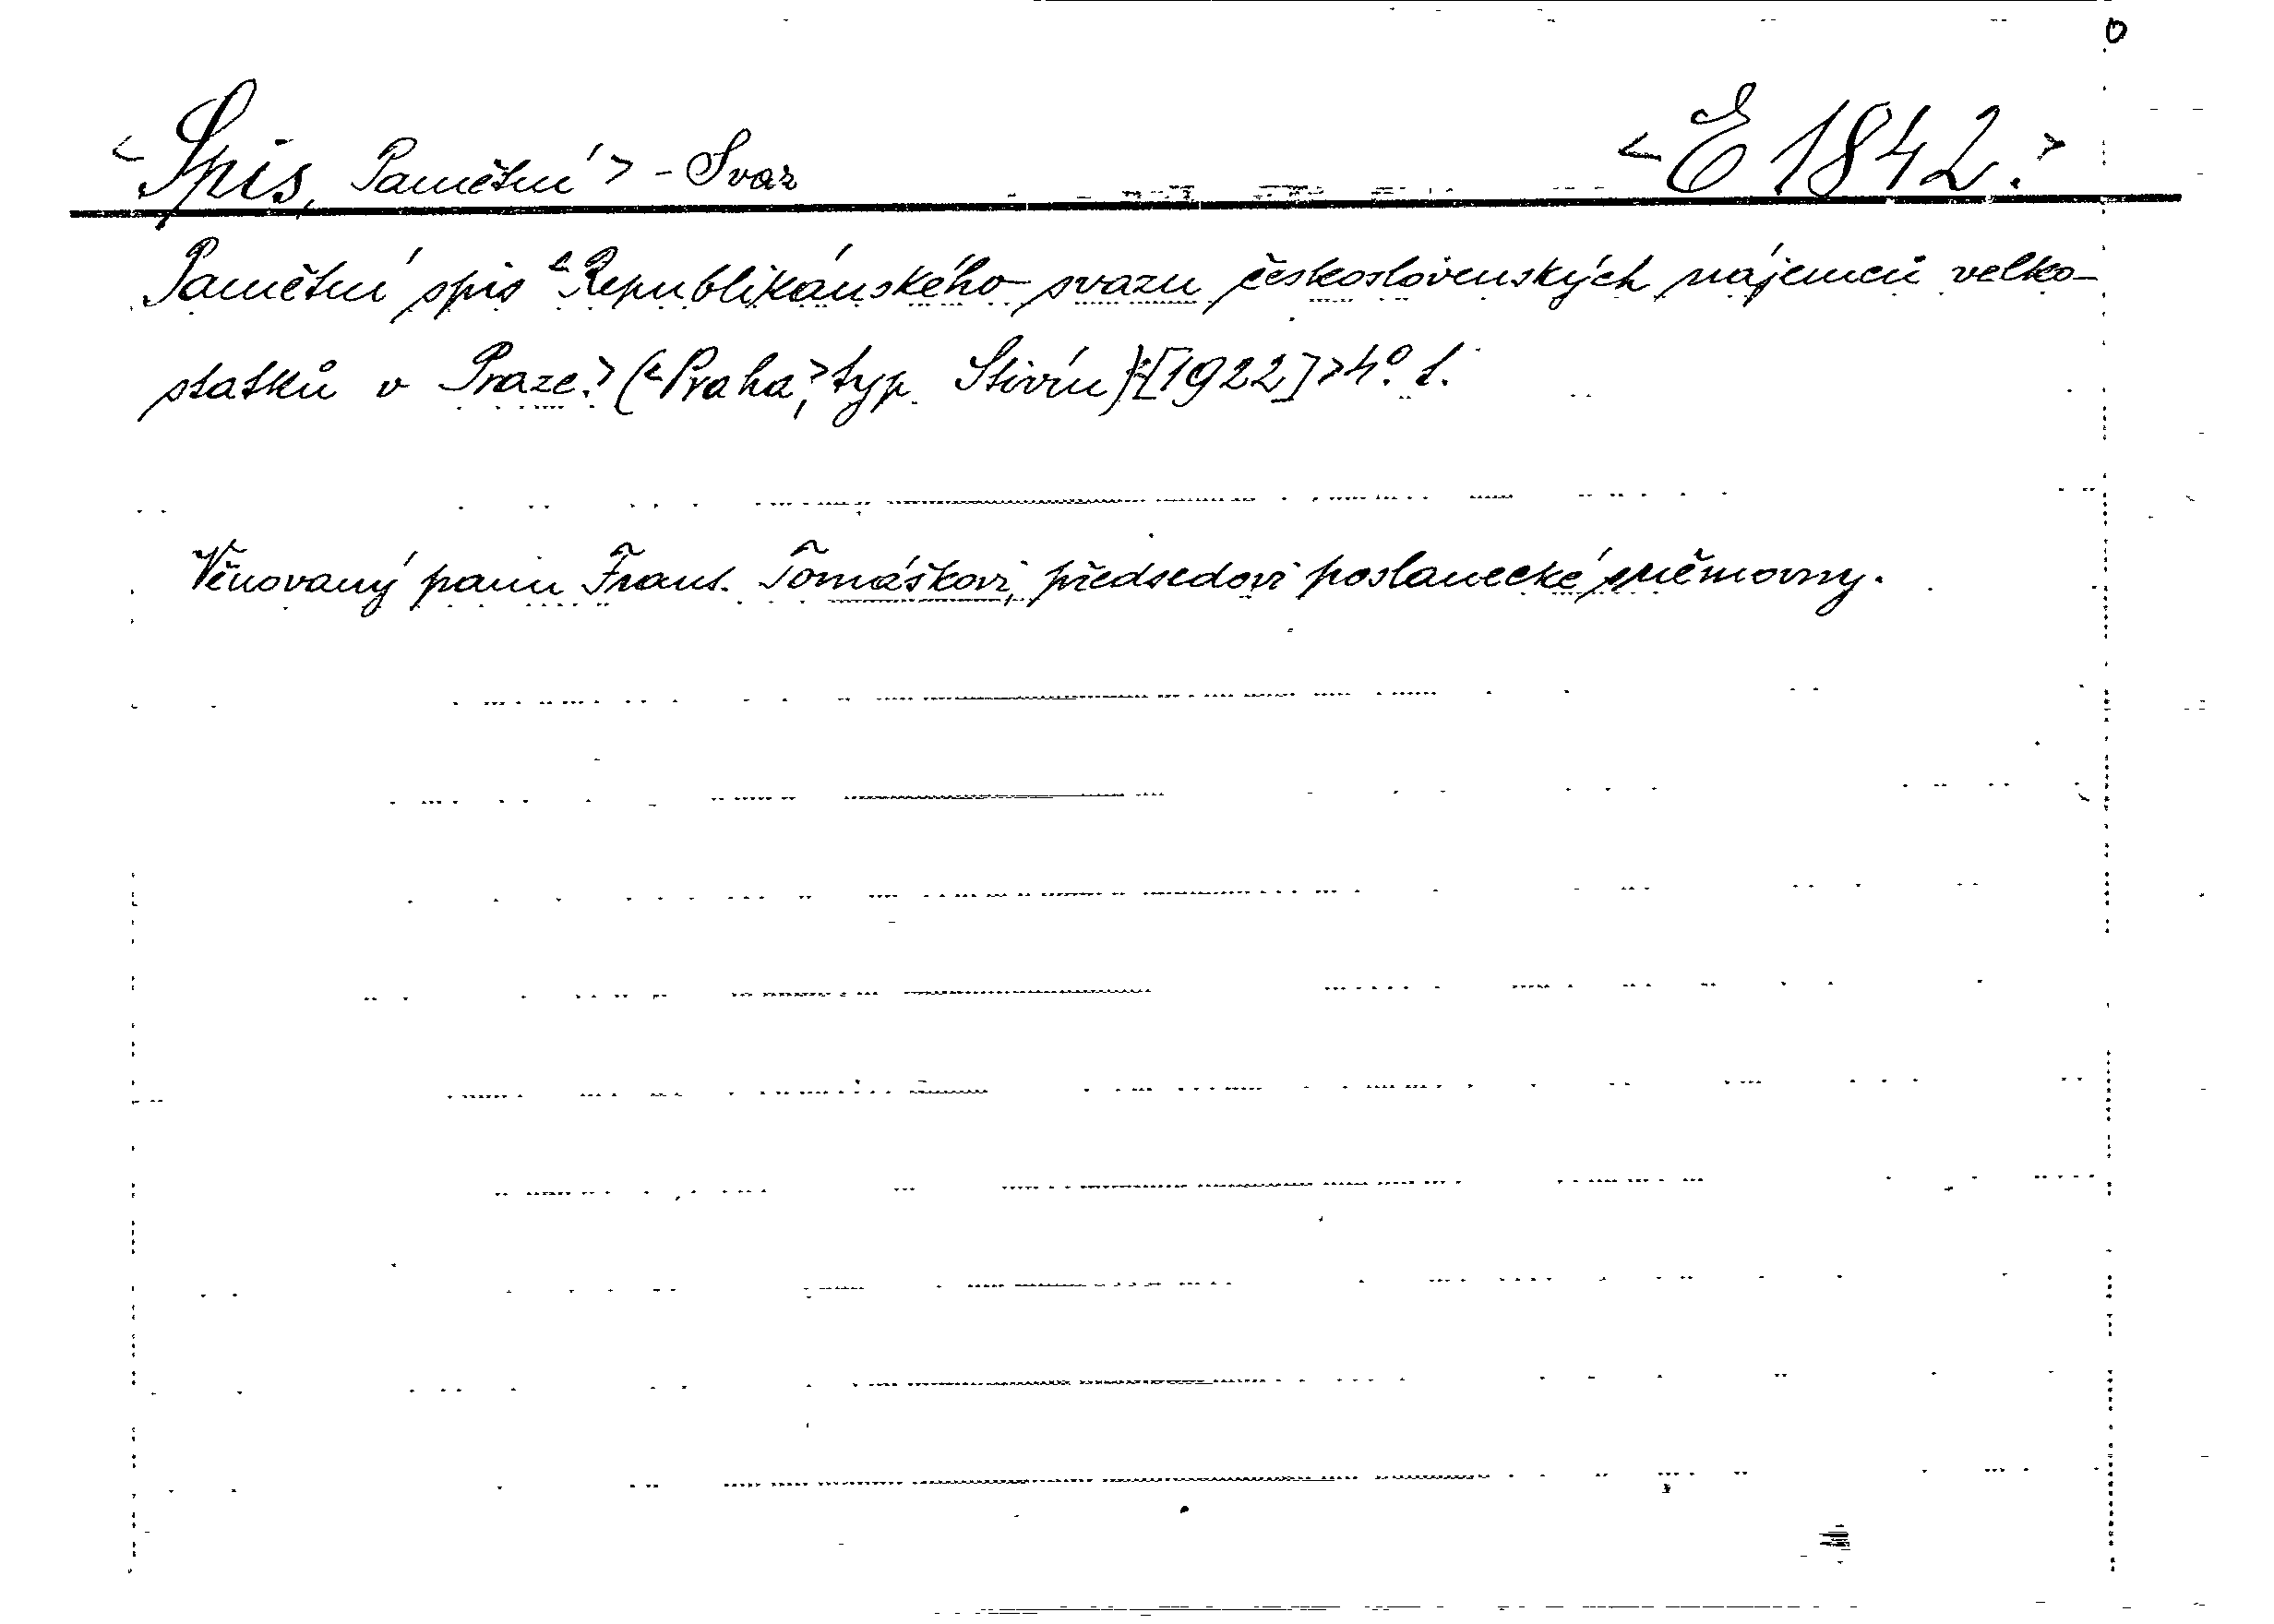 <Spis, Pamětní> - Svaz <E 1842.>
Pamětní spis <Republikánského svazu československých nájemců velko-
statků v Praze.> (<Praha,> typ. Stivín)<[1922]> 4°. 1.
Věnovaný panu Frant. Tomáškovi, předsedovi poslanecké sněmovny.